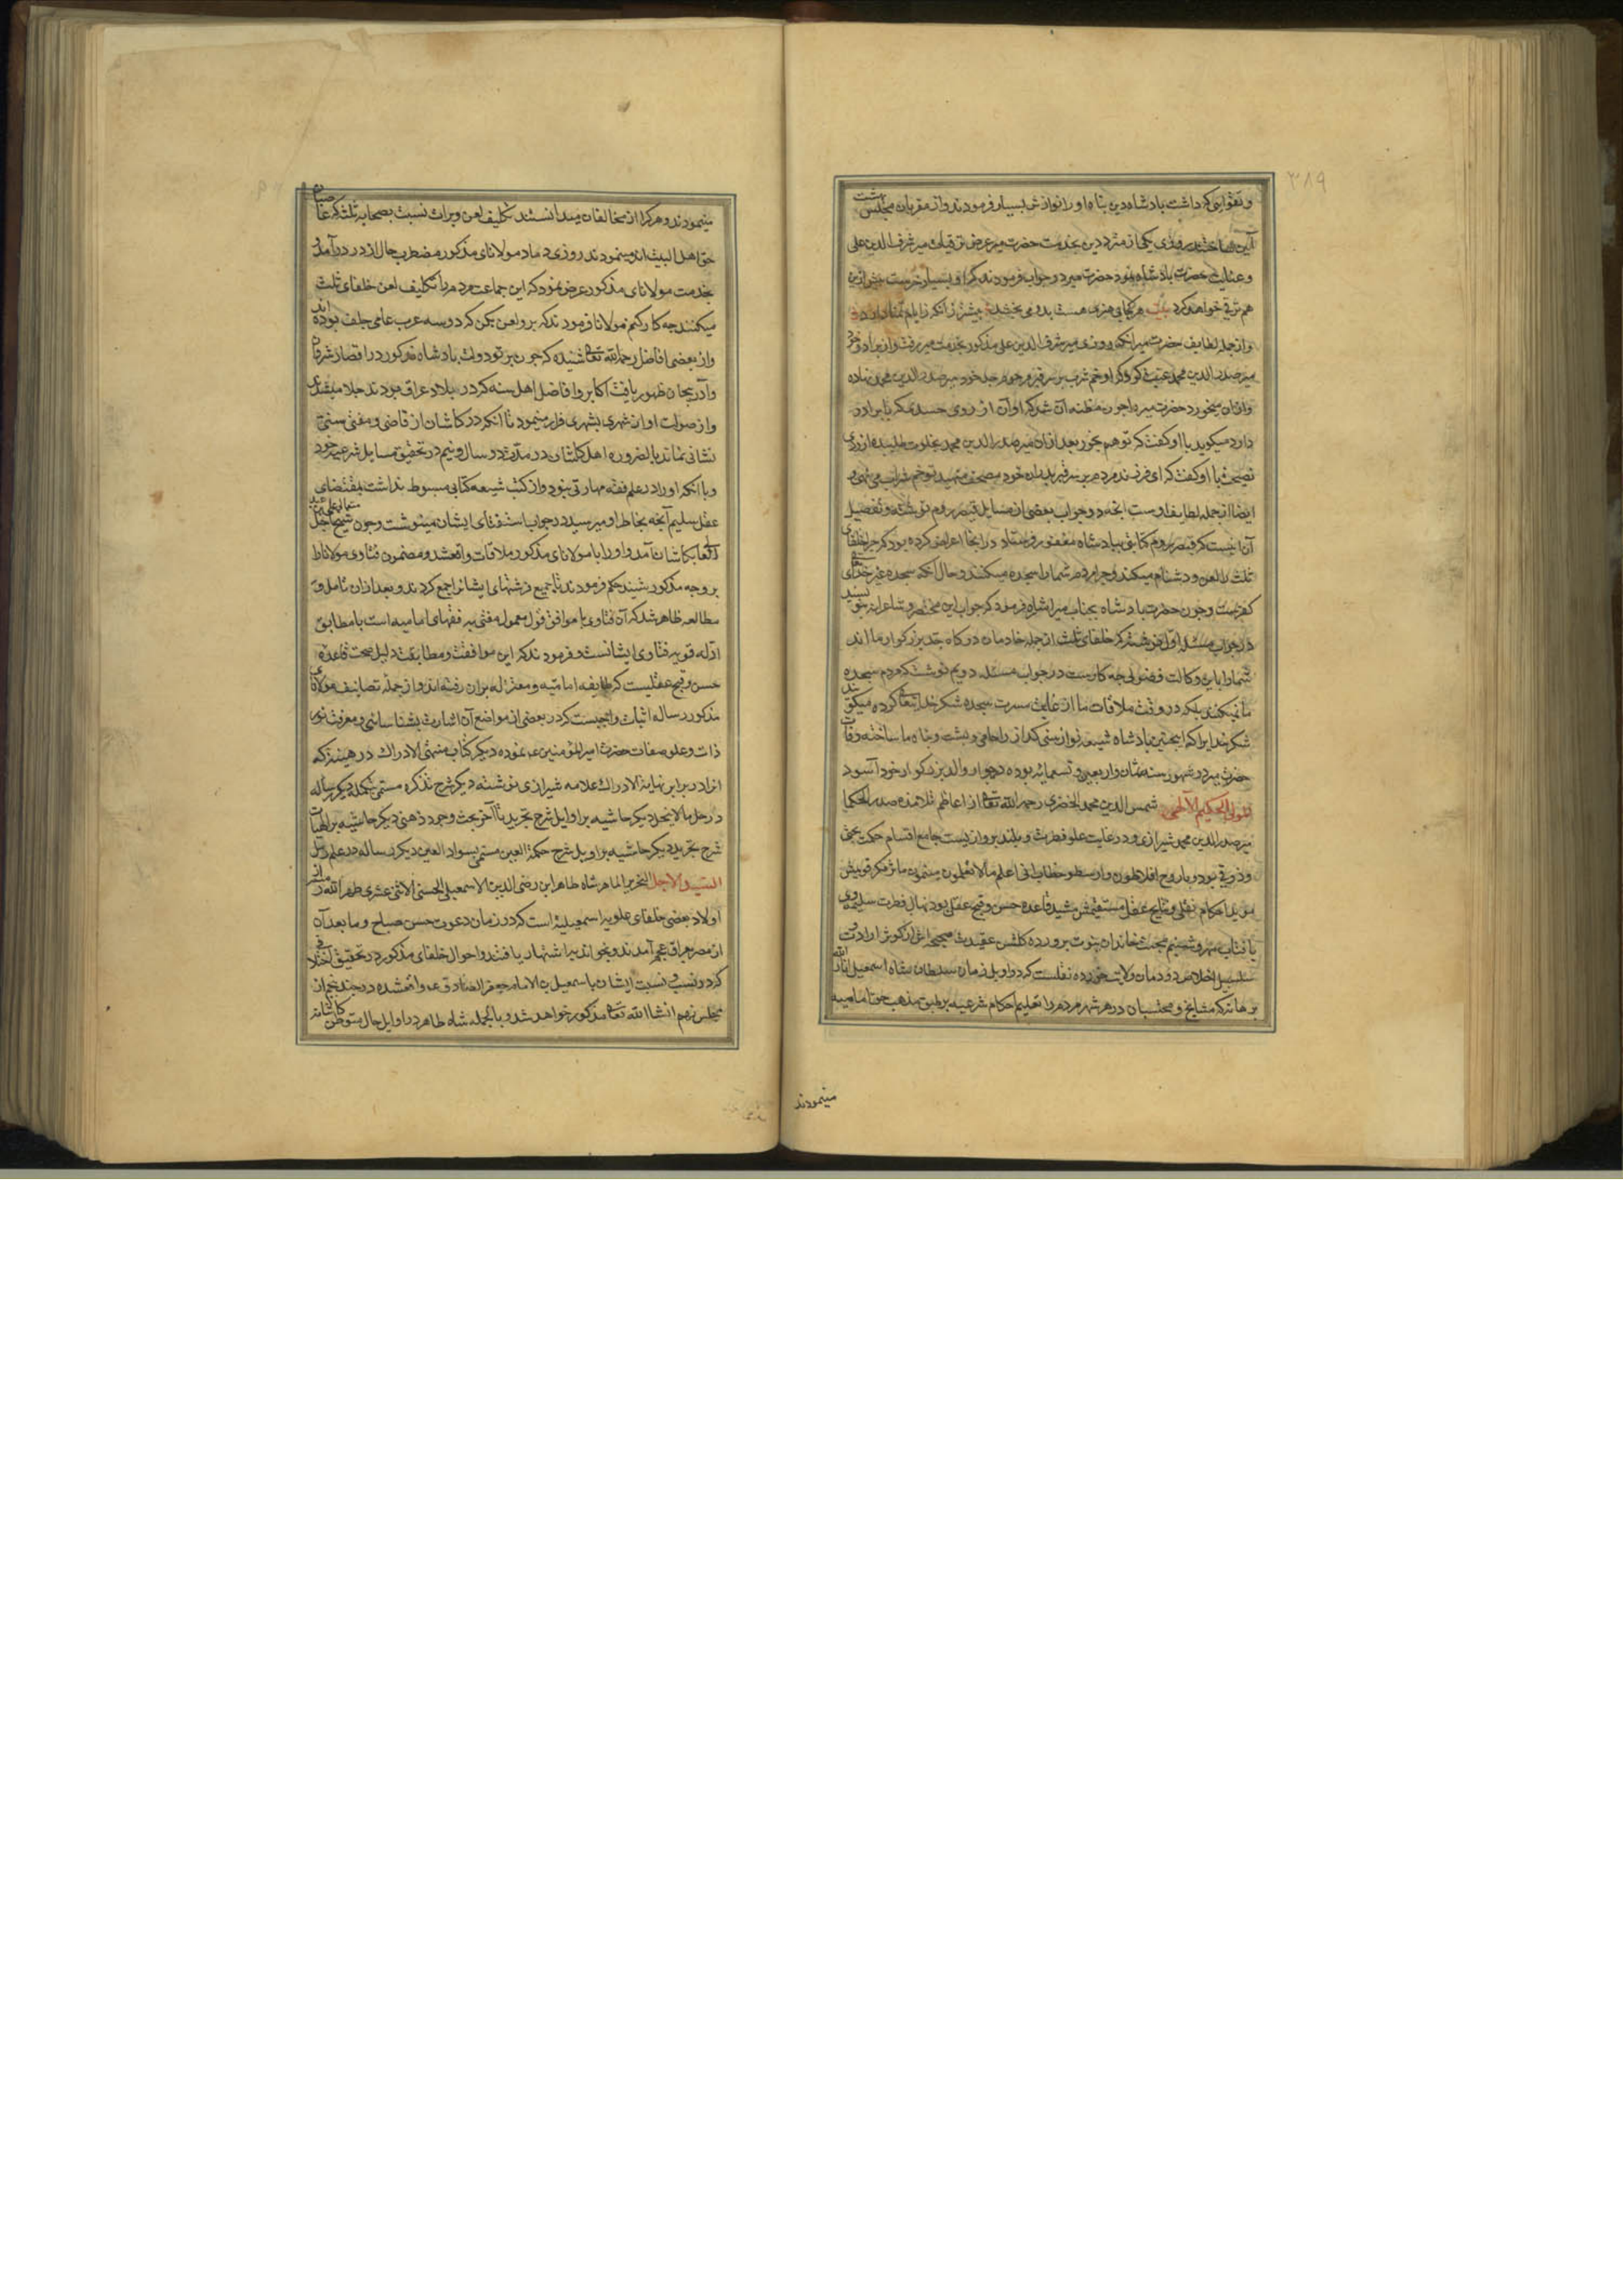 ۳۸۹
و تقوایی که داشت پادشاه دین پناه او را نوازش بسیار فرمودند و از مقربان مجلس بهشت
آیین ساختند روزی یکی از مترددین بخدمت حضرت میر عرض ترقیات میر شرف الدین علی
و عنایت حضرت پادشاه نمود حضرت میر در جواب فرمودند که او بسیار خرست پیش ازین
هم ترقی خواهد کرد بیت هر کجا بی هنری هست بدو می بخشد بیشتر زانکه ز ایام تمنا دارد
و از جمله لطایف حضرت میر آنکه روزی میر شرف الدین علی مذکور بخدمت میر رفت و از برادر خود
میر صدر الدین محمد غیبت کرد که او خم شراب بر سر قبر مرحوم جد خود میر صدر الدین محمد نهاده
و ازان میخورد حضرت میر را چون مظنه آن شد که او آن از روی حسدی که با برادر
دارد میکوید با او کفت که تو هم بخور بعد ازان میر صدر الدین محمد بخلوت طلبیده از روی
نصیحت با او کفت که ای فرزند مردم بر سر قبر پدران خود مصحف مینهند تو خم شراب می نهی و
ایضا از جمله لطایف اوست آنچه در جواب بعضی از مسایل قیصر روم نوشته و تفصیل
آن اینست که قیصر روم کتابتی بپادشاه مغفور فرستاد در آنجا اعراض کرده بود که چرا خلفای
ثلث را لعن و دشنام میکنند و چرا مردم شما را سجده میکنند و حال آنکه سجده غیر خدای تعالی
کفرست و چون حضرت پادشاه بجناب میر اشاره فرمود که جواب این مختصر و شاعرانه بنویسید
در جواب مسئله اول نوشتند که خلفای ثلث از جمله خادمان درکاه جد بزرکوار ما اند
شما را باین وکالت فضولی چه کارست در جواب مسئله دویم نوشت که مردم سجده
ما نمیکنند بلکه در وقت ملاقات ما از غایت مسرت سجده شکر خدای تعالی کرده میکویند
شکر خدایرا که اینچنین پادشاه شیعه نواز سنی کداز را حامی و پشت و پناه ما ساخته وفات
حضرت میر در شهور سنه ثمان و اربعین و تسعمایه بوده در جوار والد بزرکوار خود آسود
المولی الحکیم الآلهی شمس الدین محمد الخضری رحمه الله تعالی از اعاظم تلامذه صدر الحکما
میر صدر الدین محمد شیرازی و در غایت علو فطرت و بلند پروازیست جامع اقسام حکمت بحثی
و ذوقی بود و با روح افلاطون و ارسطو خطاب انی اعلم ما لا تعلمون مینمود ماثر فکر قویش
موید احکام نقلی و نتایج عقل مستقیمش مشید قاعده حسن و قبح عقلی بود نهال فطرت سلیمه وی
بآفتاب مهر و شبنم محبت خاندان نبوت پرورده کلشن عقیدت صحیحه اش از کوثر ارادت و
سلسبیل اخلاص دودمان ولایت خورده نقلست که در اوایل زمان سلطان شاه اسمعیل انار الله
برهانه که مشایخ و محتسبان در هر شهر مردم را تعلیم احکام شرعیه بر طبق مذهب حق امامیه
مینمودند
مینمودند و هر که را از مخالفان میدانستند تکلیف لعن و برات نسبت بصحابه ثلث که غاصبان
حق اهل البیت اند مینمودند روزی داماد مولانای مذکور مضطرب حال از در درآمد و
بخدمت مولانای مذکور عرض نمود که این جماعت مردم را تکلیف لعن خلفای ثلث
میکنند چه کار کنم مولانا فرمودند که برو لعن بکن که دو سه عرب عامی جلف بوده اند
و از بعضی افاضل رحمه الله تعالی شنیده که چون پرتو دولت پادشاه مذکور در اقصار شرقا
و آذربیجان ظهور یافت اکابر و افاضل اهل سنه که در بلاد عراق بودند جلا میشدند
و از صولت او از شهری بشهری فرار مینمودند تا آنکه در کاشان از قاضی و مفتی سنی
نشانی نماند بالضروره اهل کاشان در مدت دو سال و نیم در تحقیق مسایل شرعیه خود
و با آنکه او را در علم فقه مهارتی نبود و از کتب شیعه کتابی مبسوط نداشت بمقتضای
عقل سلیم آنچه بخاطر او میرسید در جواب استفتای ایشان مینوشت و چون شیخ اجل
بکاشان آمد و او را با مولانای مذکور ملاقات واقع شد و مضمون فتاوی مولانا را
بر وجه مذکور شنید حکم فرمودند تا جمیع نوشتهای ایشانرا جمع کردند و بعد ازان تامل و
مطالعه ظاهر شد که آن فتاوی یا موافق قول معمول مفتی به فقهای امامیه است یا مطابق
ادله قویه فتاوی ایشانست و فرمودند که این موافقت و مطابقت دلیل صحت قاعده
حسن و قبح عقلیست که طایفه امامیه و معتزله بران رفته اند و از جمله تصانیف مولانای
مذکور رساله اثبات واجبست که در بعضی از مواضع آن اشارت بشناسائی و معرفت نور
ذات و علو صفات حضرت امیر المؤمنین ع نموده دیکر کتاب منتهی الادراک در هیئت که
انرا در برابر نهایة الادراک علامه شیرازی نوشته دیکر شرح تذکره مسمی بتکمله دیکر رساله
در حل ما لا ینحل دیکر حاشیه بر اوایل شرح تجرید تا آخر بحث وجود ذهنی دیکر حاشیه بر الهیات
شرح تجرید دیکر حاشیه بر اوایل شرح حکمة العین مسمی بسواد العین دیکر رساله در علم رمل
السید الاجل النحریر الماهر شاه طاهر ابن رضی الدین الاسمعیلی الحسینی الاثنی عشری طهر الله
اولاد بعضی خلفای علویه اسمعیلیه است که در زمان دعوت حسن صباح و ما بعد آن
از مصر بعراق عجم آمدند و بخواندیه اشتهار یافتند و احوال خلفای مذکور در تحقیق اختلافی
که در نسب و نسبت ایشان باسمعیل بن الامام جعفر الصادق ع واقع شده در جند پنجم از
مجلس نهم انشا الله تعالی مذکور خواهد شد و بالجمله شاه طاهر در اوایل حال متوطن کاشان